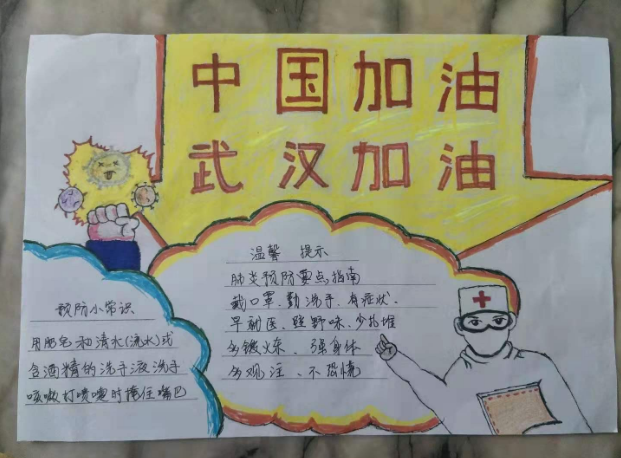 中国加油
武汉加油
温馨 提示
肺炎预防要点指南
戴口罩、勤洗手、有症状、
早就医、野味、少扎堆
多锻炼、强身体
多观注、不恐慌
预防小常识
用肥皂和清水(流水)或
含酒精的洗手液洗手
咳嗽打喷嚏时掩住嘴巴